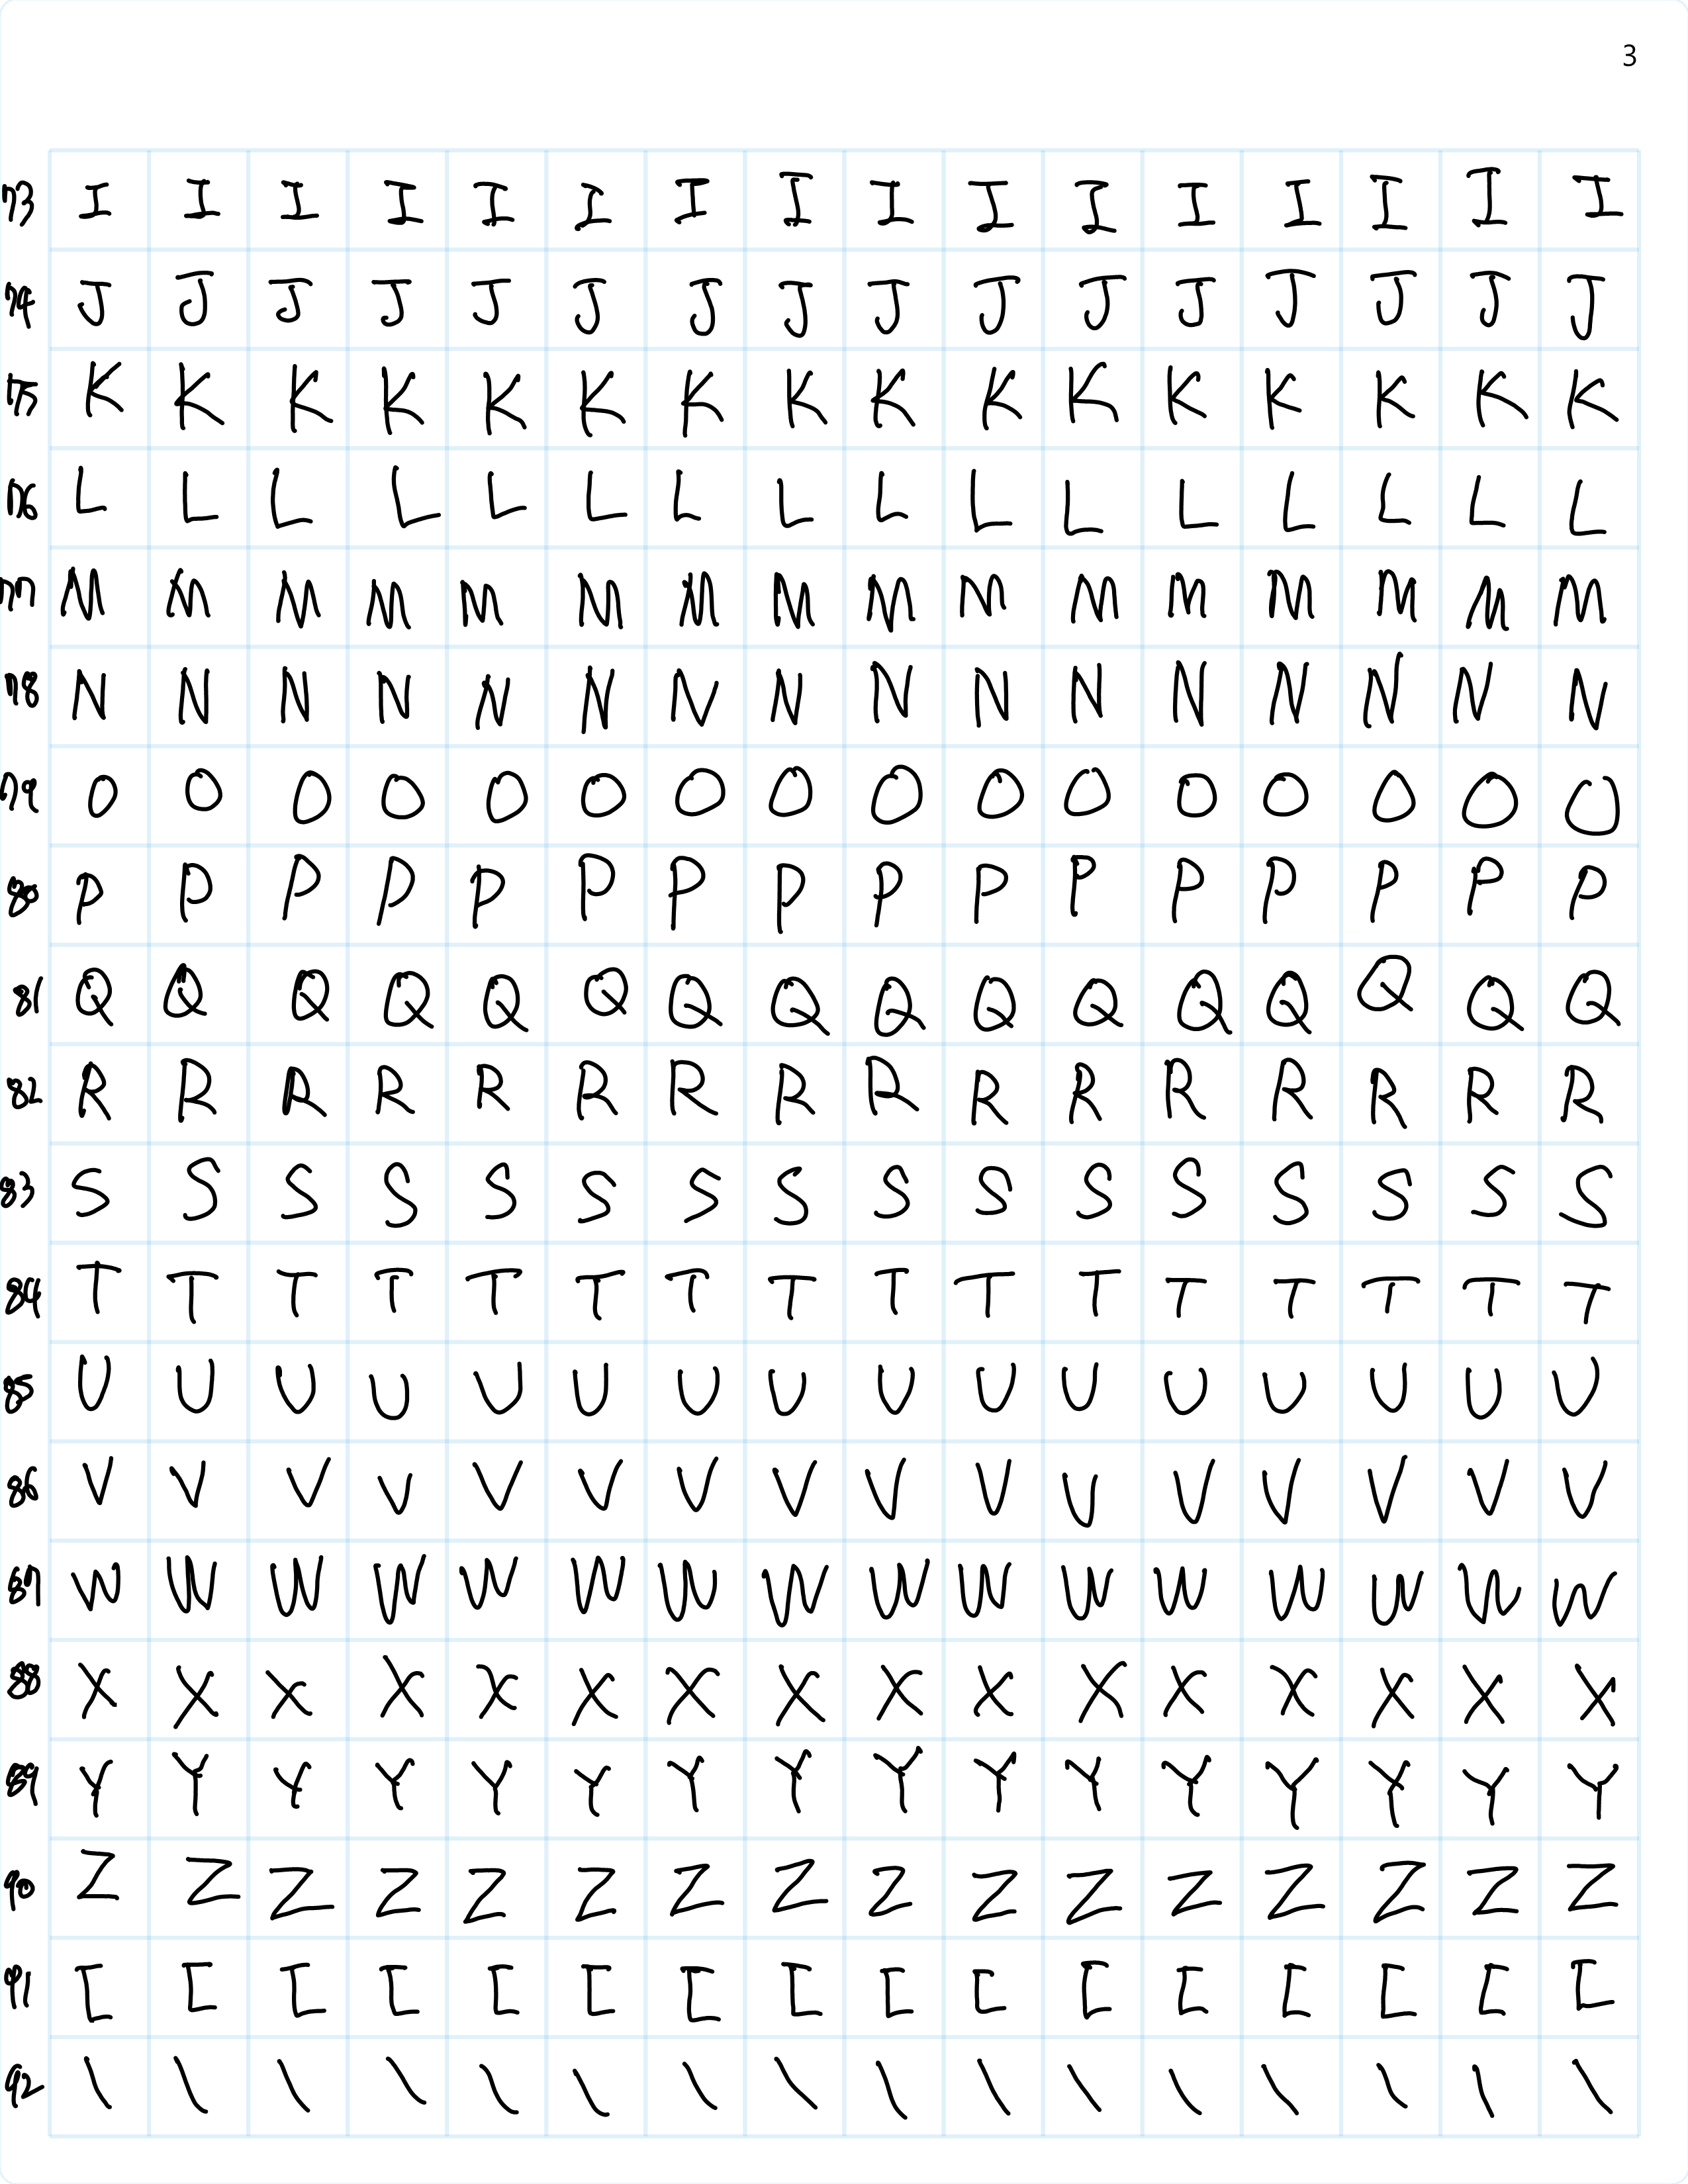 3
73 I I I I I I I I I I I I I I I I
74 J J J J J J J J J J J J J J J J
75 K K K K K K K K K K K K K K K K
76 L L L L L L L L L L L L L L L L
77 M M M M M M M M M M M M M M M M
78 N N N N N N N N N N N N N N N N
79 O O O O O O O O O O O O O O O O
80 P P P P P P P P P P P P P P P P
81 Q Q Q Q Q Q Q Q Q Q Q Q Q Q Q Q
82 R R R R R R R R R R R R R R R R
83 S S S S S S S S S S S S S S S S
84 T T T T T T T T T T T T T T T T
85 U U U U U U U U U U U U U U U U
86 V V V V V V V V V V V V V V V V
87 W W W W W W W W W W W W W W W W
88 X X X X X X X X X X X X X X X X
89 Y Y Y Y Y Y Y Y Y Y Y Y Y Y Y Y
90 Z Z Z Z Z Z Z Z Z Z Z Z Z Z Z Z
91 [ [ [ [ [ [ [ [ [ [ [ [ [ [ [ [
92 \ \ \ \ \ \ \ \ \ \ \ \ \ \ \ \